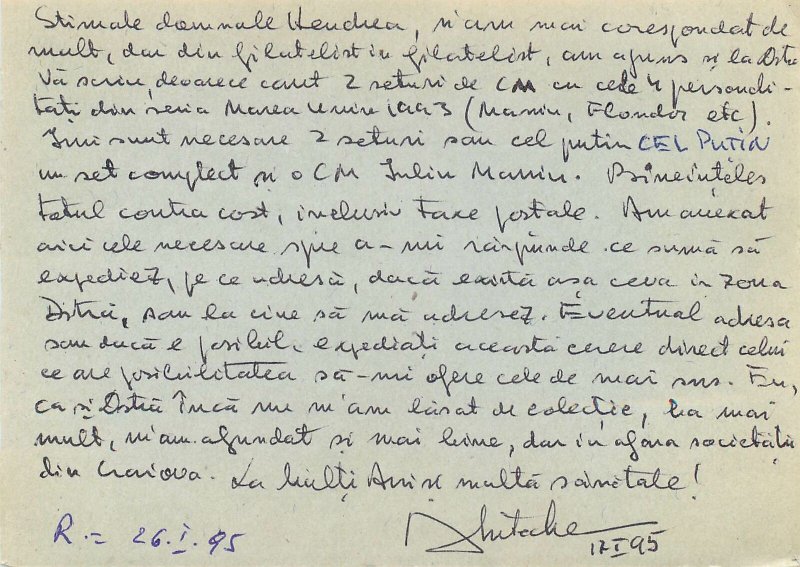 Stimate domnule Hendrea, n'am mai corespondat de
mult, dar din filatelist in filatelist, am ajuns și la Dstră
Vă scriu, deoarece caut 2 seturi de CM cu cele 4 personali-
tați din seria Marea Unire 1993 (Maniu, Flondor etc).
Imi sunt necesare 2 seturi sau cel putin CEL PUTIN
un set complect și o CM Iuliu Maniu. Bineințeles
totul contra cost, inclusiv taxe postale. Am anexat
aici cele necesare spre a-mi răspunde ce sumă să
expediez, pe ce adresă, dacă există așa ceva in zona
Dstră, sau la cine să mă adresez. Eventual adresa
sau dacă e posibil, expediați această cerere direct celui
ce are posibilitatea să-mi ofere cele de mai sus. Eu,
ca și Dstră încă nu m'am lăsat de colecție, ba mai
mult, m'am afundat și mai bine, dar in afara societății
din Craiova. La Mulți Ani și multă sănătate!
R.= 26.I.95
17 I 95